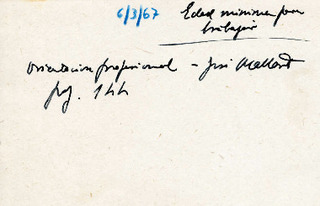 6/3/67
Edad minima para
trabajar
Orientacion profesional - José Mallart
pag. 144